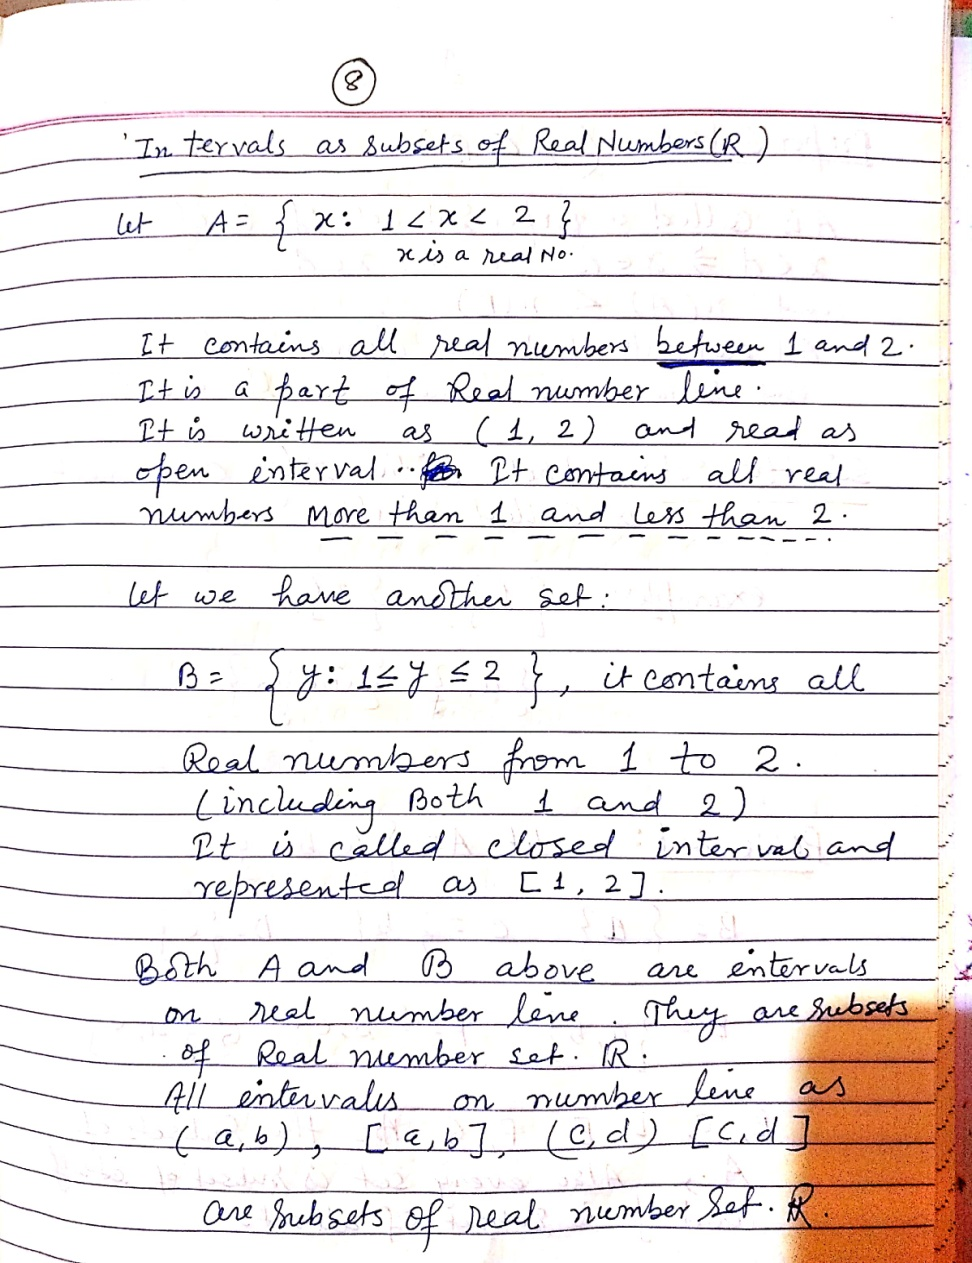 8
'Intervals as subsets of Real Numbers (R)
let A = { x: 1 < x < 2 }
x is a real No.
It contains all real numbers between 1 and 2.
It is a part of Real number line.
It is written as (1, 2) and read as
open interval .. It contains all real
numbers more than 1 and less than 2.
let we have another set:
B = { y: 1 ≤ y ≤ 2 }, it contains all
Real numbers from 1 to 2.
(including Both 1 and 2)
It is called closed interval and
represented as [1, 2].
Both A and B above are intervals
on real number line. They are subsets
of Real number set. R.
All intervals on number line as
(a, b), [a, b], (c, d) [c, d]
are subsets of real number Set. R.